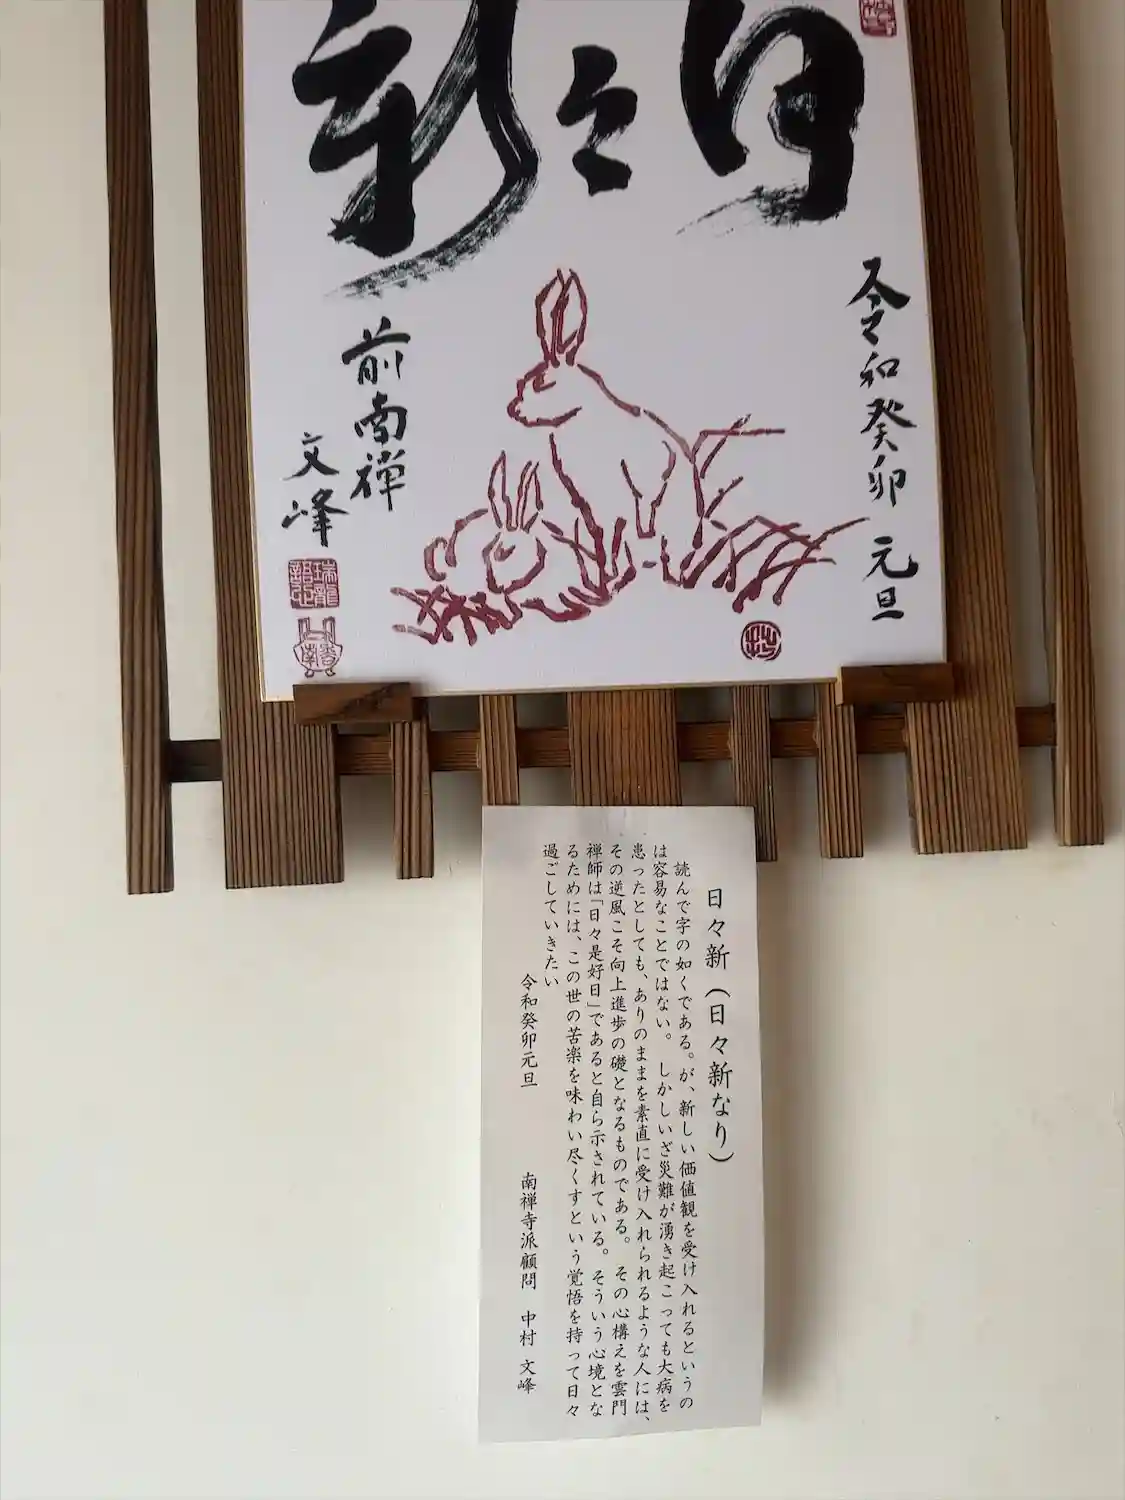 日々新
令和癸卯 元旦
前南禅
文峰
日々新（日々新なり）
読んで字の如くである。が、新しい価値観を受け入れるというの
は容易なことではない。しかしいざ災難が湧き起こっても大病を
患ったとしても、ありのままを素直に受け入れられるような人には、
その逆風こそ向上進歩の礎となるものである。その心構えを雲門
禅師は「日々是好日」であると自ら示されている。そういう心境とな
るためには、この世の苦楽を味わい尽くすという覚悟を持って日々
過ごしていきたい
令和癸卯元旦
南禅寺派顧問 中村 文峰